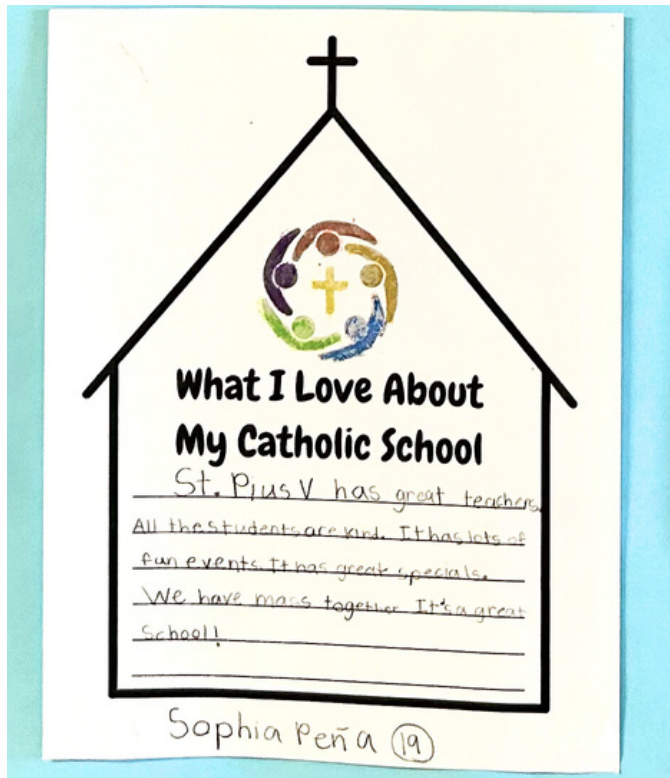 What I Love About
My Catholic School
St. Pius V has great teachers.
All the students are kind. It has lots of
fun events. It has great specials.
We have mass together. It's a great
School!
Sophia Peña 19